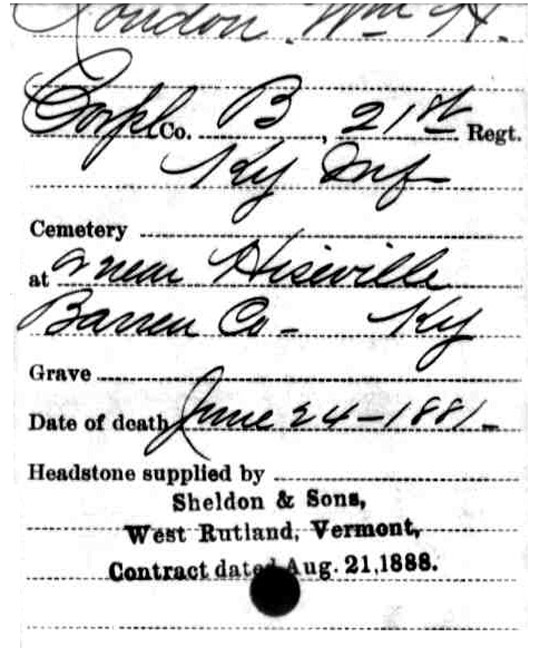 London. Wm H.
Corpl Co. B, 21st Regt.
Ky Inf
Cemetery
at near Hiseville
Barren Co - Ky
Grave
Date of death June 24-1881-
Headstone supplied by
Sheldon & Sons,
West Rutland, Vermont,
Contract dated Aug. 21, 1888.